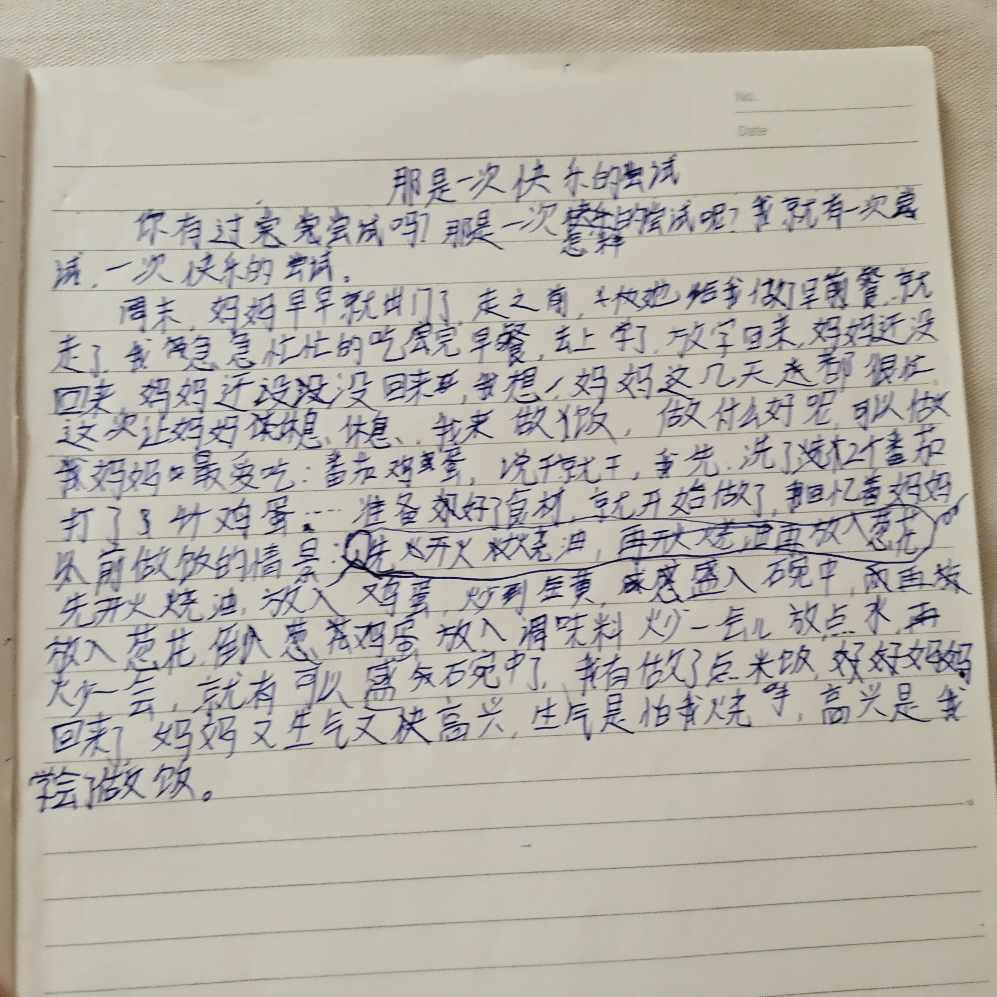 No.
Date
那是一次快乐的尝试
你有过尝尝试吗?那是一次怎样的尝试呢?我就有一次尝
试,一次快乐的尝试。
周末,妈妈早早就出门了,走之前,她给我做了早前餐,就
走了,我急急忙忙的吃完早餐,去上学了,放学回来,妈妈还没
回来,妈妈还没没没回来,我想,妈妈这几天都很忙
这次让妈妈休息、休息、,我来做饭,做什么好呢,可以做
我妈妈最爱吃:番茄鸡蛋,说干就干,我先.洗了2个番茄
打了3个鸡蛋....准备好了食材,就开始做了,我回忆着妈妈
以前做饭的情景:先开火烧油,再放入葱花
先开火烧油,放入鸡蛋,炒到金黄,盛入碗中,再放
放入葱花,倒入鸡蛋,放入调味料炒一会儿放点水,再
炒一会,就可以盛碗中了,我有做了点米饭,好好妈妈
回来了,妈妈又生气又高兴,生气是怕我烧手,高兴是我
学会了做饭。